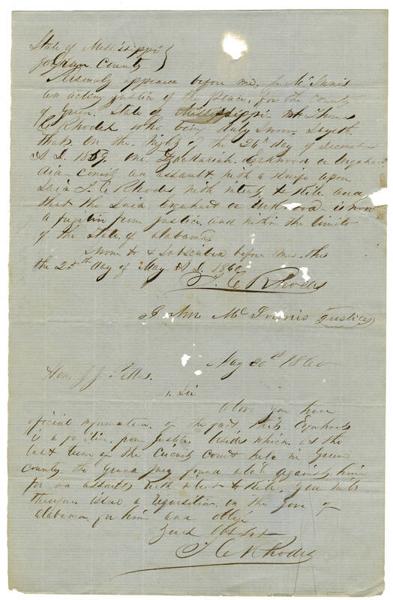 State of Mississippi
Green County
Personally appeared before me
an acting Justice of the Peace, for the County
of Green, State of Mississippi Mr
C Rhodes who being duly Sworn Sayeth
that on the Night of the 26th day of
A D. 1859 One or
did Commit an assault with a knife upon
Said T. C. Rhodes with intent to Kill and
that the Said is now
a fugitive from Justice and within the limits
of the State of Alabama
Sworn to & subscribed before me this
the 25th day of May A D. 1860
T. C. Rhodes
Justice
May 30th 1860
Hon. J J. Pettus
Sir
official information of the fact, this
is a fugitive from Justice besides which at the
last term of the Circuit Court held in Green
County the Grand Jury found a bill against him
for an assault with intent to Kill. You will
therefore issue a requisition on the Gov of
Alabama for him and oblige
Your Obt Svt
T C Rhodes